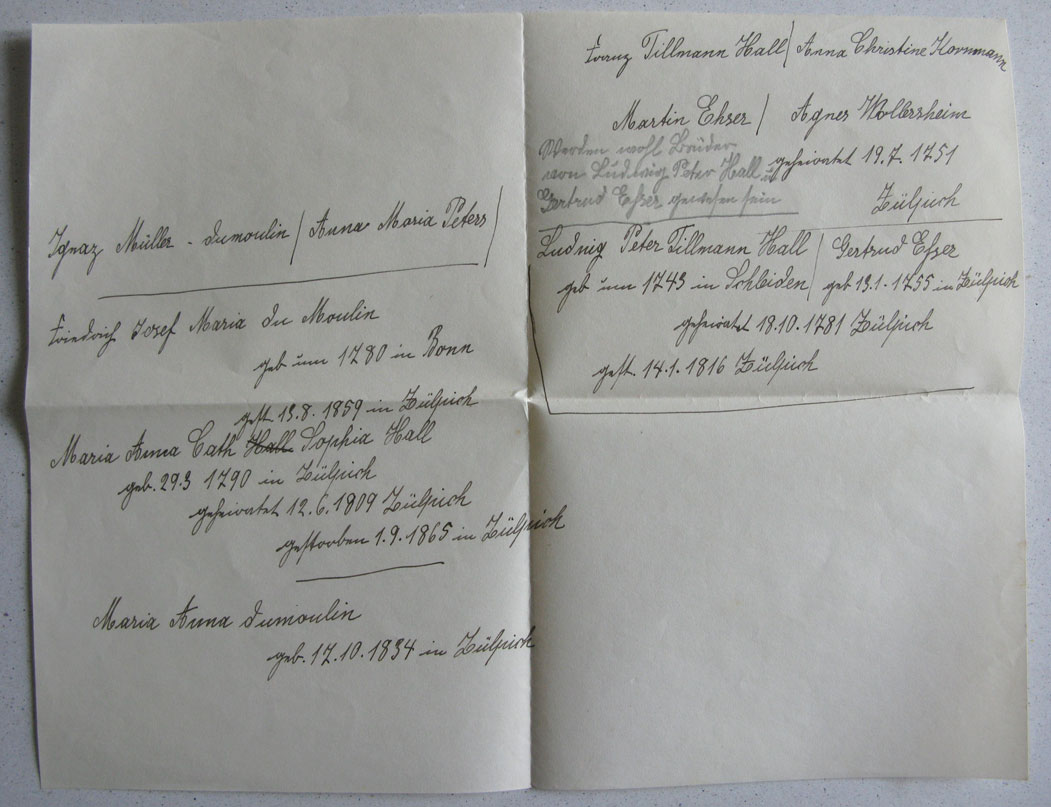 Ignaz Müller - dumoulin / Anna Maria Peters /
Friedrich Josef Maria du Moulin
geb um 1780 in Bonn
gest. 13.8. 1859 in Zülpich
Maria Anna Cath Hall Sophia Hall
geb. 29.3 1790 in Zülpich
geheiratet 12.6.1809 Zülpich
gestorben 1.9.1865 in Zülpich
Maria Anna dumoulin
geb. 17.10.1834 in Zülpich
Franz Tillmann Hall / Anna Christine Kornmann
Martin Ehser / Agnes Wollersheim
geheiratet 19.7.1751
Zülpich
Werden wohl Brüder
von Ludwig Peter Hall u
Gertrud Eſser gewesen sein
Ludwig Peter Tillmann Hall / Gertrud Eſser
geb um 1743 in Schleiden / geb 13.1.1755 in Zülpich
geheiratet 18.10.1781 Zülpich
gest. 14.1.1816 Zülpich